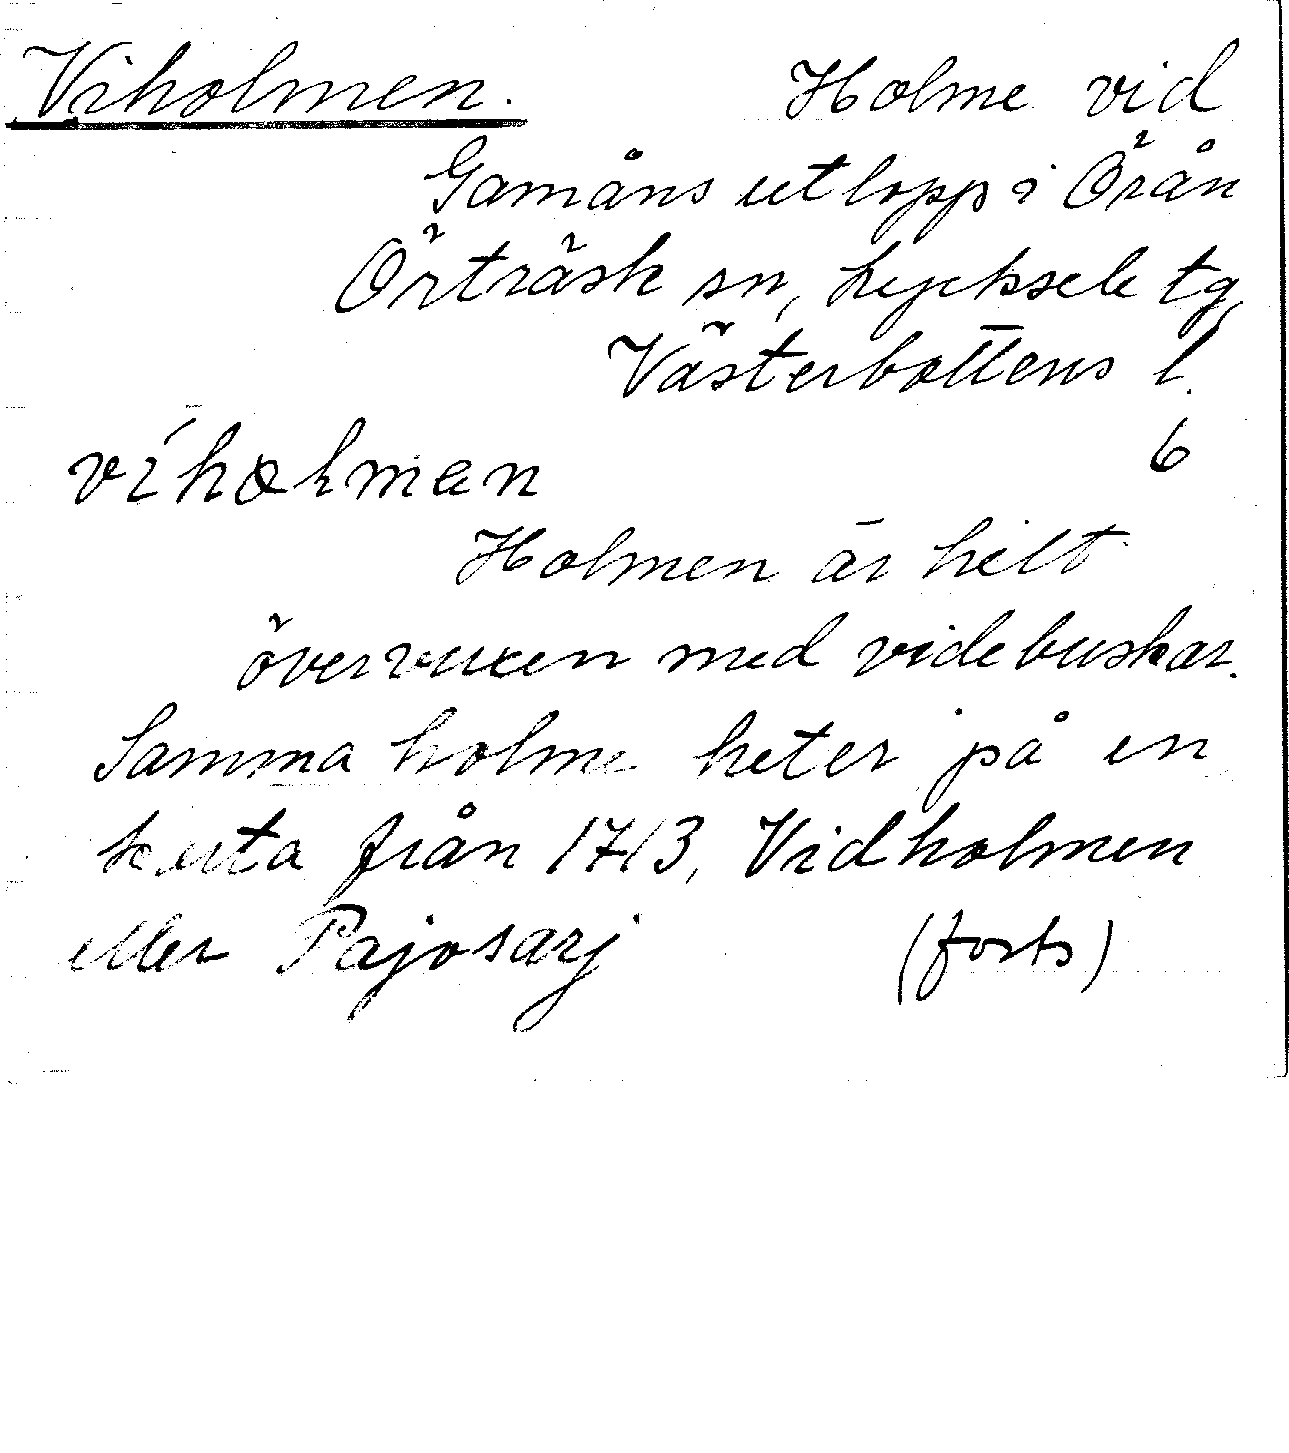 Viholmen. Holme vid
Gamåns utlopp i Örån
Örträsk sn, Lycksele tg,
Västerbottens l.
6
víhɷlmæn
Holmen är helt
övervuxen med videbuskar.
Samma holme heter på en
karta från 1713, Vidholmen
eller Pajosarj (forts)